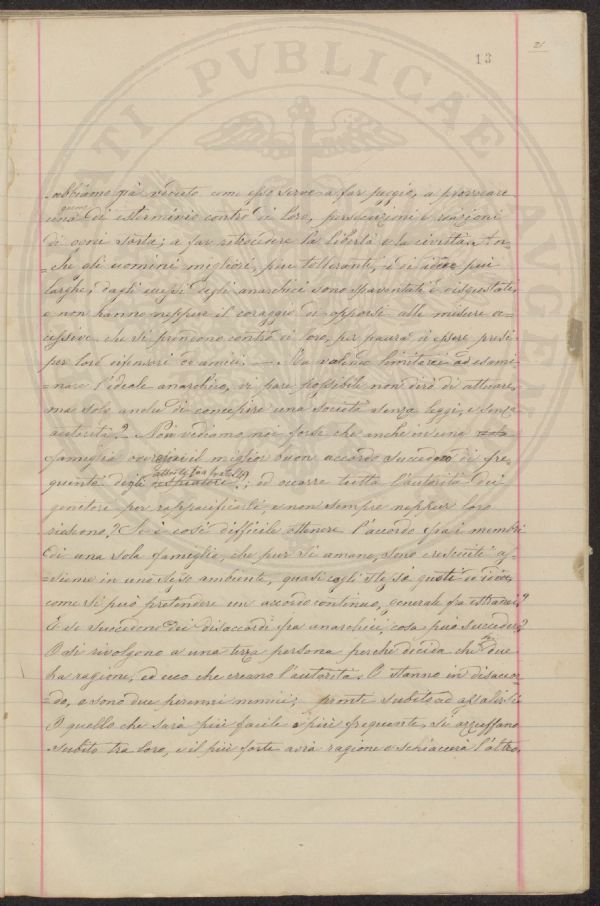 13
21
abbiamo già veduto come esso serve a far peggio, a provocare
una guerra di esterminio contro di loro, persecuzioni e reazioni
di ogni sorta; a far retrocedere la libertà e la civiltà. An-
=che gli uomini migliori, più tolleranti, e di idee più
larghe, dagli eccessi degli anarchici sono spaventati e disgustati,
e non hanno neppur il coraggio di opporsi alle misure ec-
cessive che si prendono contro di loro, per paura di essere presi
per loro difensori ed amici. — Ma volendo limitarci ad esami-
nare l'ideale anarchico, vi pare possibile non dirò di attuare,
ma solo anche di concepire una società senza leggi, e senza
autorità? Non vediamo noi forse che anche in una
famiglia ove il miglior buon accordo succedono di fre-
quente degli attriti tra fratelli; ed occorre tutta l'autorità dei
genitori per rappacificarli, e non sempre neppur loro
riescono? Se è così difficile ottenere l'accordo fra i membri
di una sola famiglia, che pur si amano, sono cresciuti as-
sieme in uno stesso ambiente, quasi cogli stessi gusti ed idee,
come si può pretendere un accordo continuo, generale fra estranei?
E se succedono dei disaccordi fra anarchici, cosa può succedere?
O si rivolgono a una terza persona perché decida chi tra due
ha ragione, ed ecco che creano l'autorità. O stanno in disaccor-
=do, e sono due perenni nemici; pronti subito ad assalirsi.
O quello che sarà più facile e più frequente, si azzuffano
subito tra loro, e il più forte avrà ragione e schiaccerà l'altro.
PVBLICAE